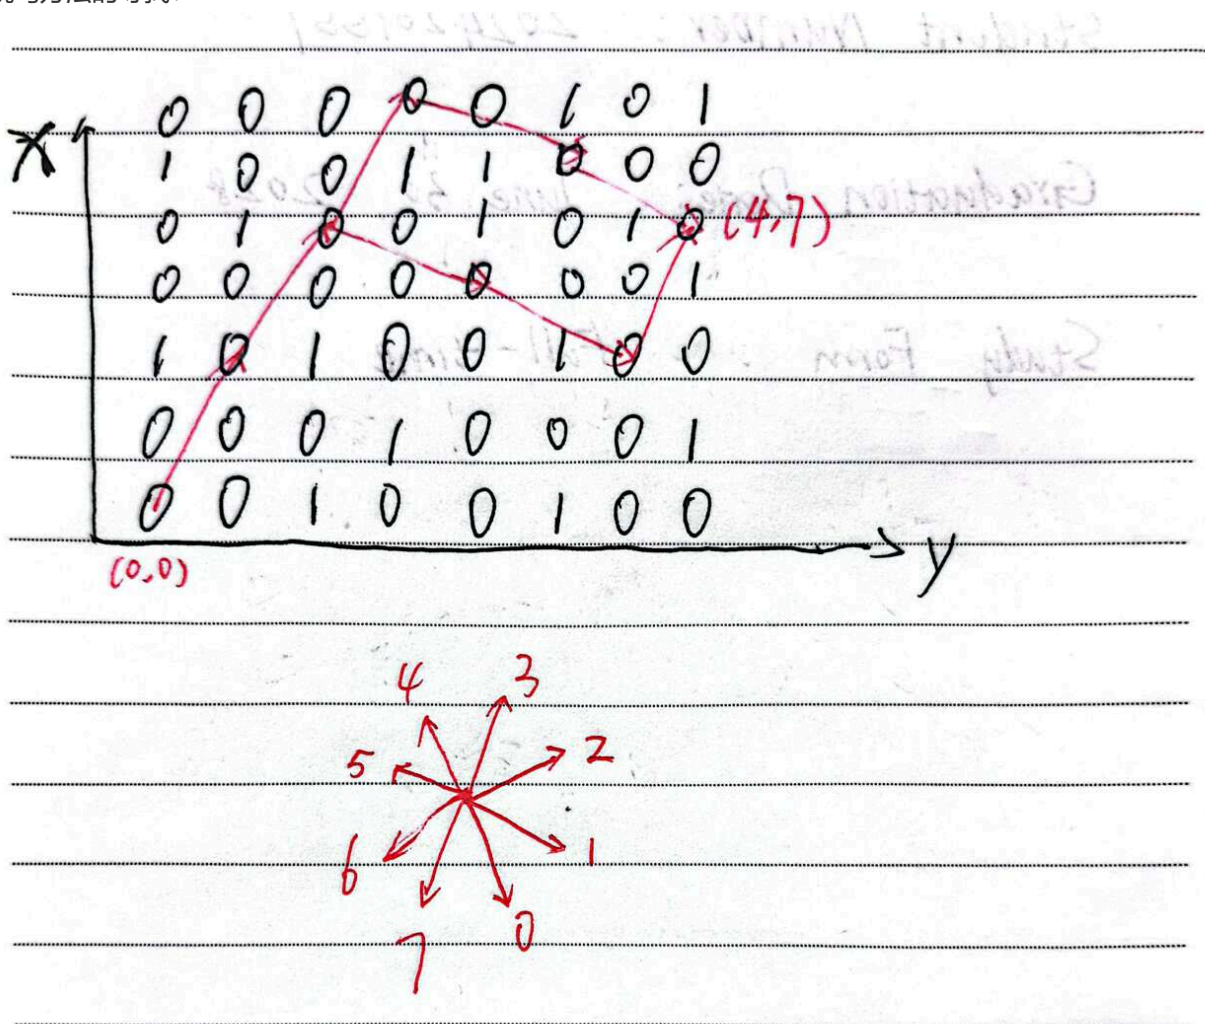 0 0 0 0 0 1 0 1
X 1 0 0 1 1 0 0 0
0 1 0 0 1 0 1 0 (4,7)
0 0 0 0 0 0 0 1
1 0 1 0 0 1 0 0
0 0 0 1 0 0 0 1
0 0 1 0 0 1 0 0
(0,0) y
4 3
5 2
6 1
7 0